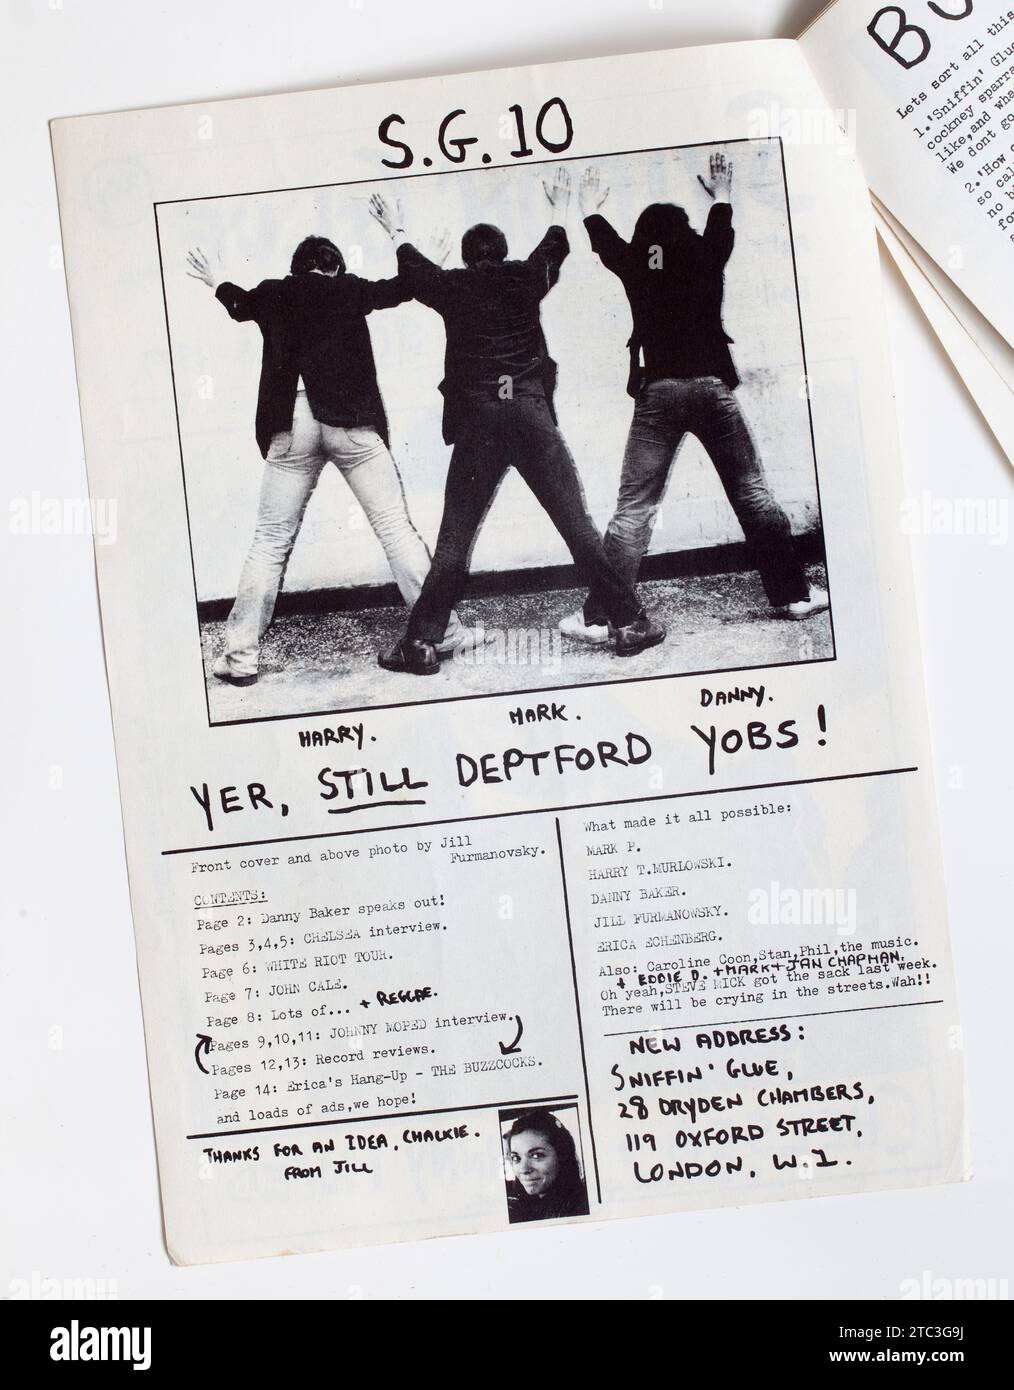 S.G.10
HARRY.
MARK.
DANNY.
YER, STILL DEPTFORD YOBS!
Front cover and above photo by Jill
Furmanovsky.
CONTENTS:
Page 2: Danny Baker speaks out!
Pages 3,4,5: CHELSEA interview.
Page 6: WHITE RIOT TOUR.
Page 7: JOHN CALE.
Page 8: Lots of... + REGGAE.
Pages 9,10,11: JOHNNY MOPED interview.
Pages 12,13: Record reviews.
Page 14: Erica's Hang-Up - THE BUZZCOCKS.
and loads of ads,we hope!
THANKS FOR AN IDEA, CHALKIE.
FROM JILL
What made it all possible:
MARK P.
HARRY T.MURLOWSKI.
DANNY BAKER.
JILL FURMANOWSKY.
ERICA ECHENBERG.
Also: Caroline Coon,Stan,Phil,the music.
+ EDDIE D. + MARK + JAN CHAPMAN.
Oh yeah,STEVE MICK got the sack last week.
There will be crying in the streets.Wah!!
NEW ADDRESS:
SNIFFIN' GLUE,
28 DRYDEN CHAMBERS,
119 OXFORD STREET,
LONDON, W.1.
Lets sort all this
1.'Sniffin' Glue
cockney sparra
like,and wha
We dont go
2.'How
so cal
no b
for
alamy
alamy
Image ID: 2TC3G9J
www.alamy.com